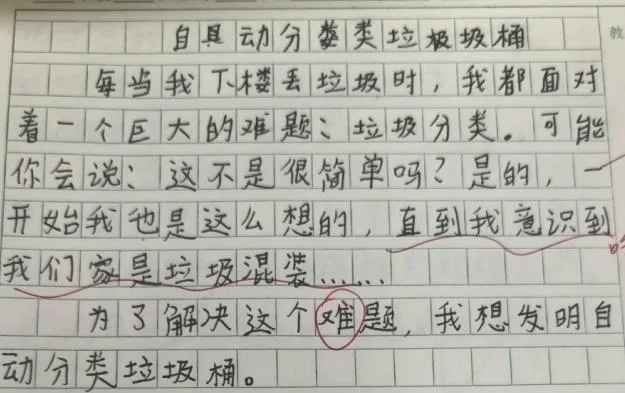 自具动分类类垃圾圾桶
每当我下楼丢垃圾时，我都面对
着一个巨大的难题：垃圾分类。可能
你会说：这不是很简单吗？是的，一
开始我也是这么想的，直到我意识到
我们家是垃圾混装……
为了解决这个难题，我想发明自
动分类垃圾桶。
教